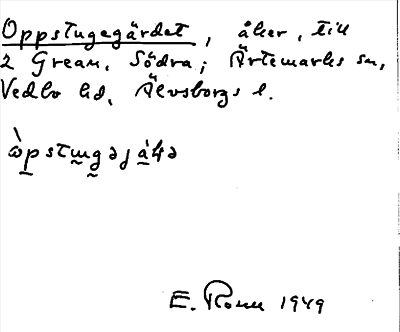 Oppstugegärdet, åker, till
2 Grean, Södra; Ärtemarks sn,
Vedbo hd, Älvsborgs l.
E. Rosen 1949